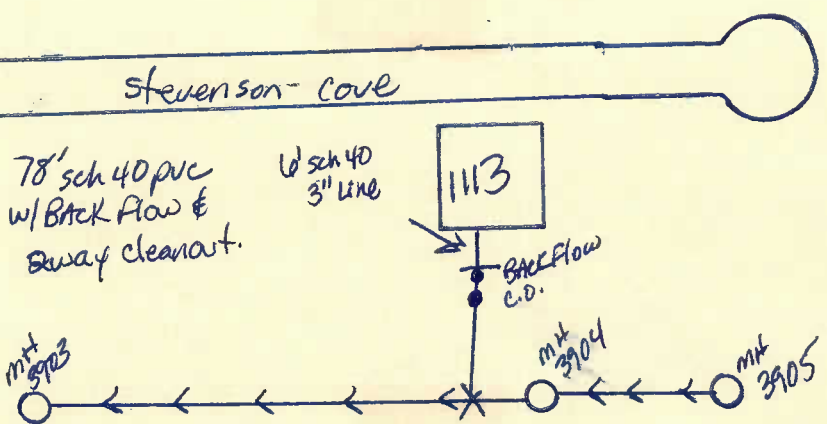 Stevenson- cove
78' sch 40 pvc
w/ BACK flow &
2way cleanout.
6' sch 40
3" Line
1113
BACKFlow
C.O.
MH
3903
MH
3904
MH
3905